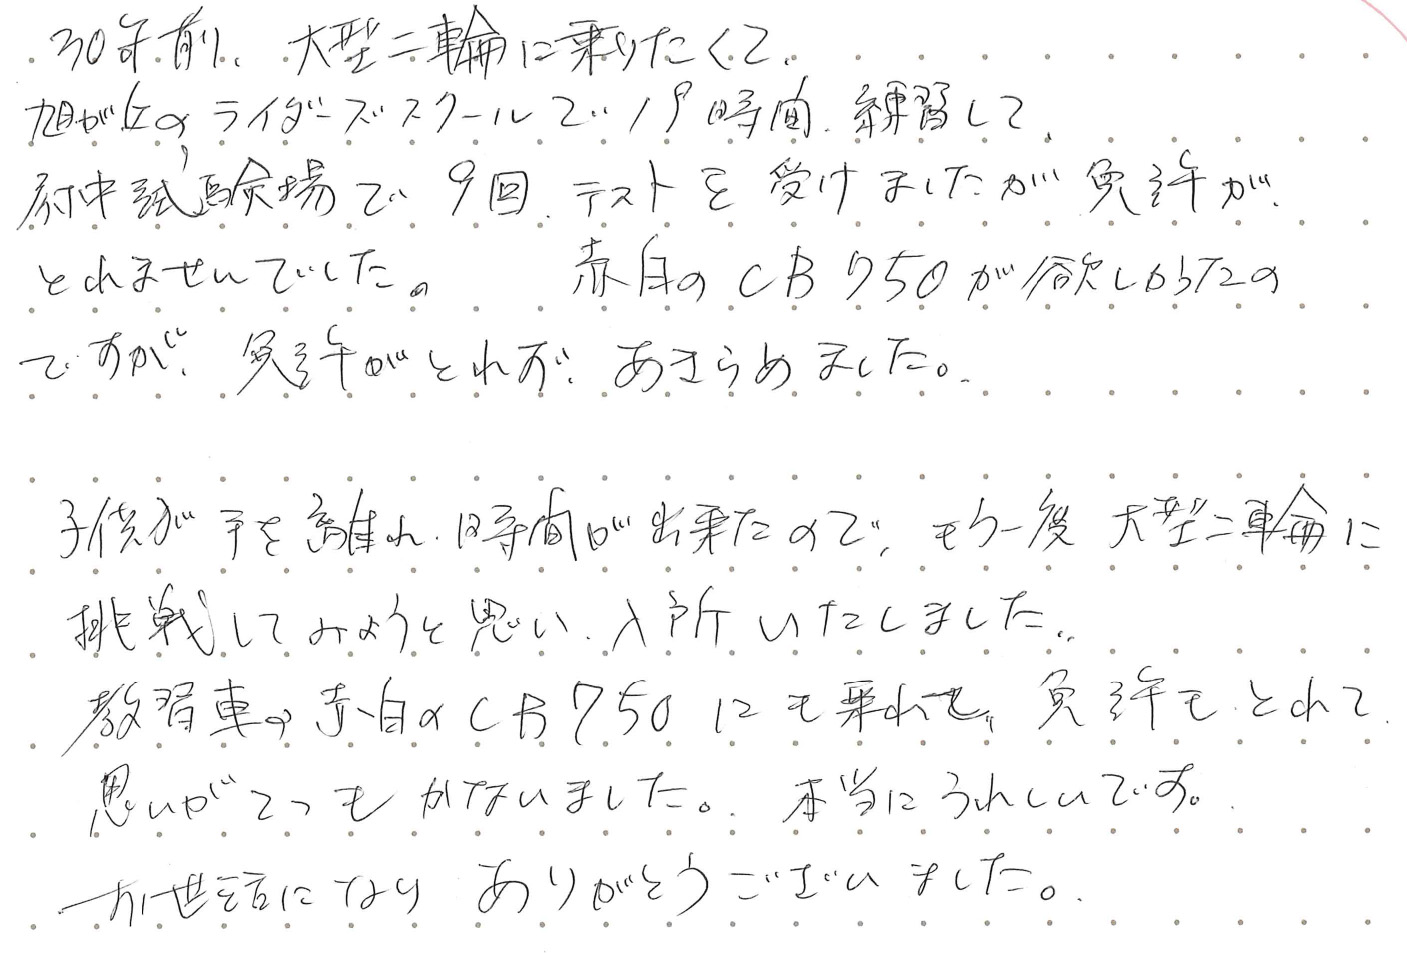 30年前、大型二輪に乗りたくて、
旭が丘のライダーズスクールで19時間、練習して、
府中試験場で9回、テストを受けましたが免許が、
とれませんでした。 赤白のCB750が欲しかったの
ですが、免許がとれず、あきらめました。
子供が手を離れ、時間が出来たので、もう一度大型二輪に
挑戦してみようと思い、入所いたしました。
教習車の赤白のCB750にも乗れて、免許もとれて、
思いがてつもかないました。本当にうれしいです。
お世話になりありがとうございました。